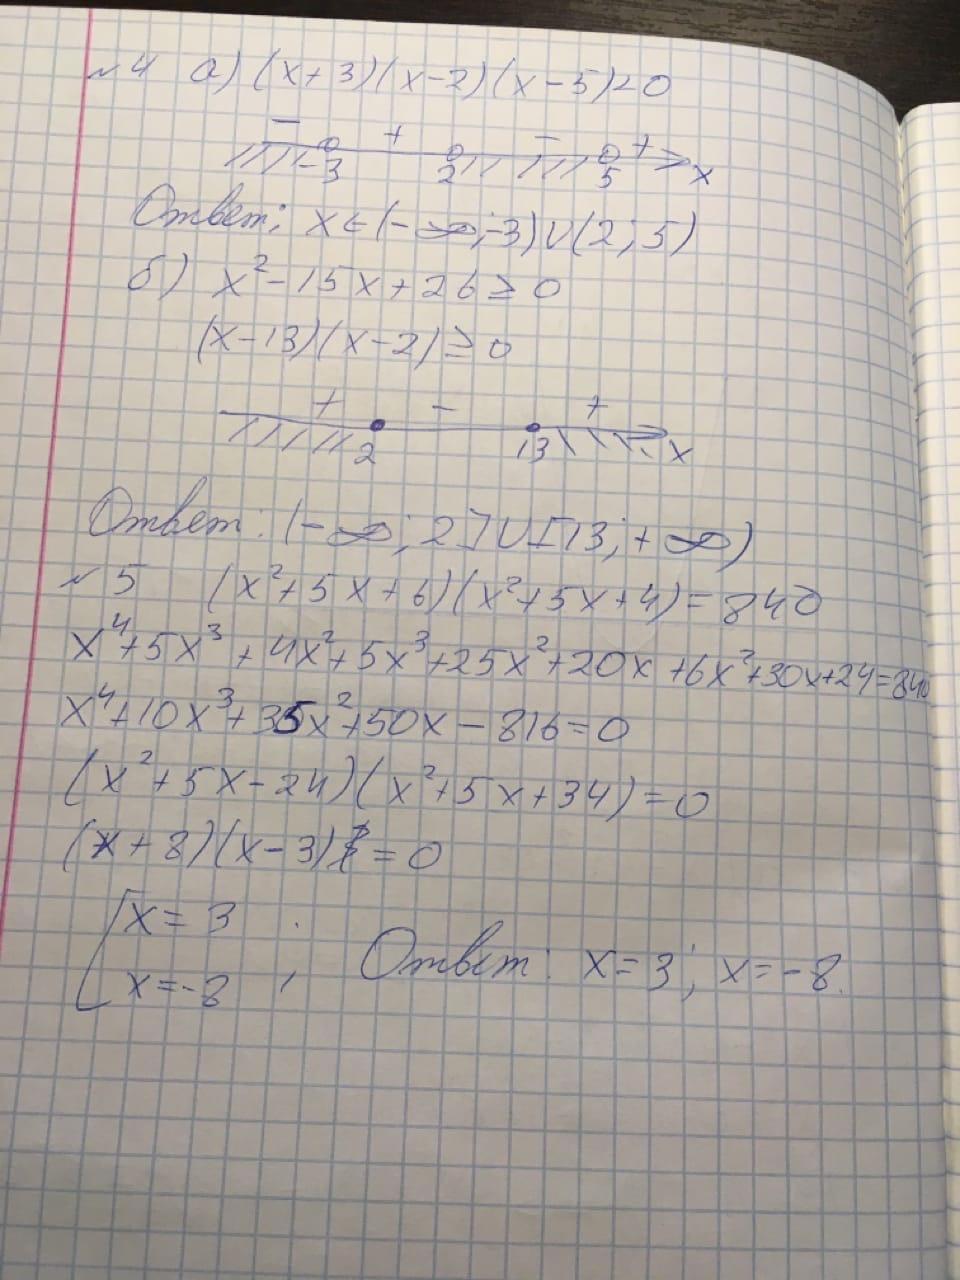 №4 а) (x+3)(x-2)(x-5)<0
- + - +
-3 2 5 x
Ответ: x∈(-∞;-3)∪(2;5)
б) x²-15x+26≥0
(x-13)(x-2)≥0
+ - +
2 13 x
Ответ: (-∞;2]∪[13;+∞)
№5 (x²+5x+6)(x²+5x+4)=840
x⁴+5x³+4x²+5x³+25x²+20x+6x²+30x+24=840
x⁴+10x³+35x²+50x-816=0
(x²+5x-24)(x²+5x+34)=0
(x+8)(x-3)=0
[x=3
x=-8, Ответ: x=3; x=-8.